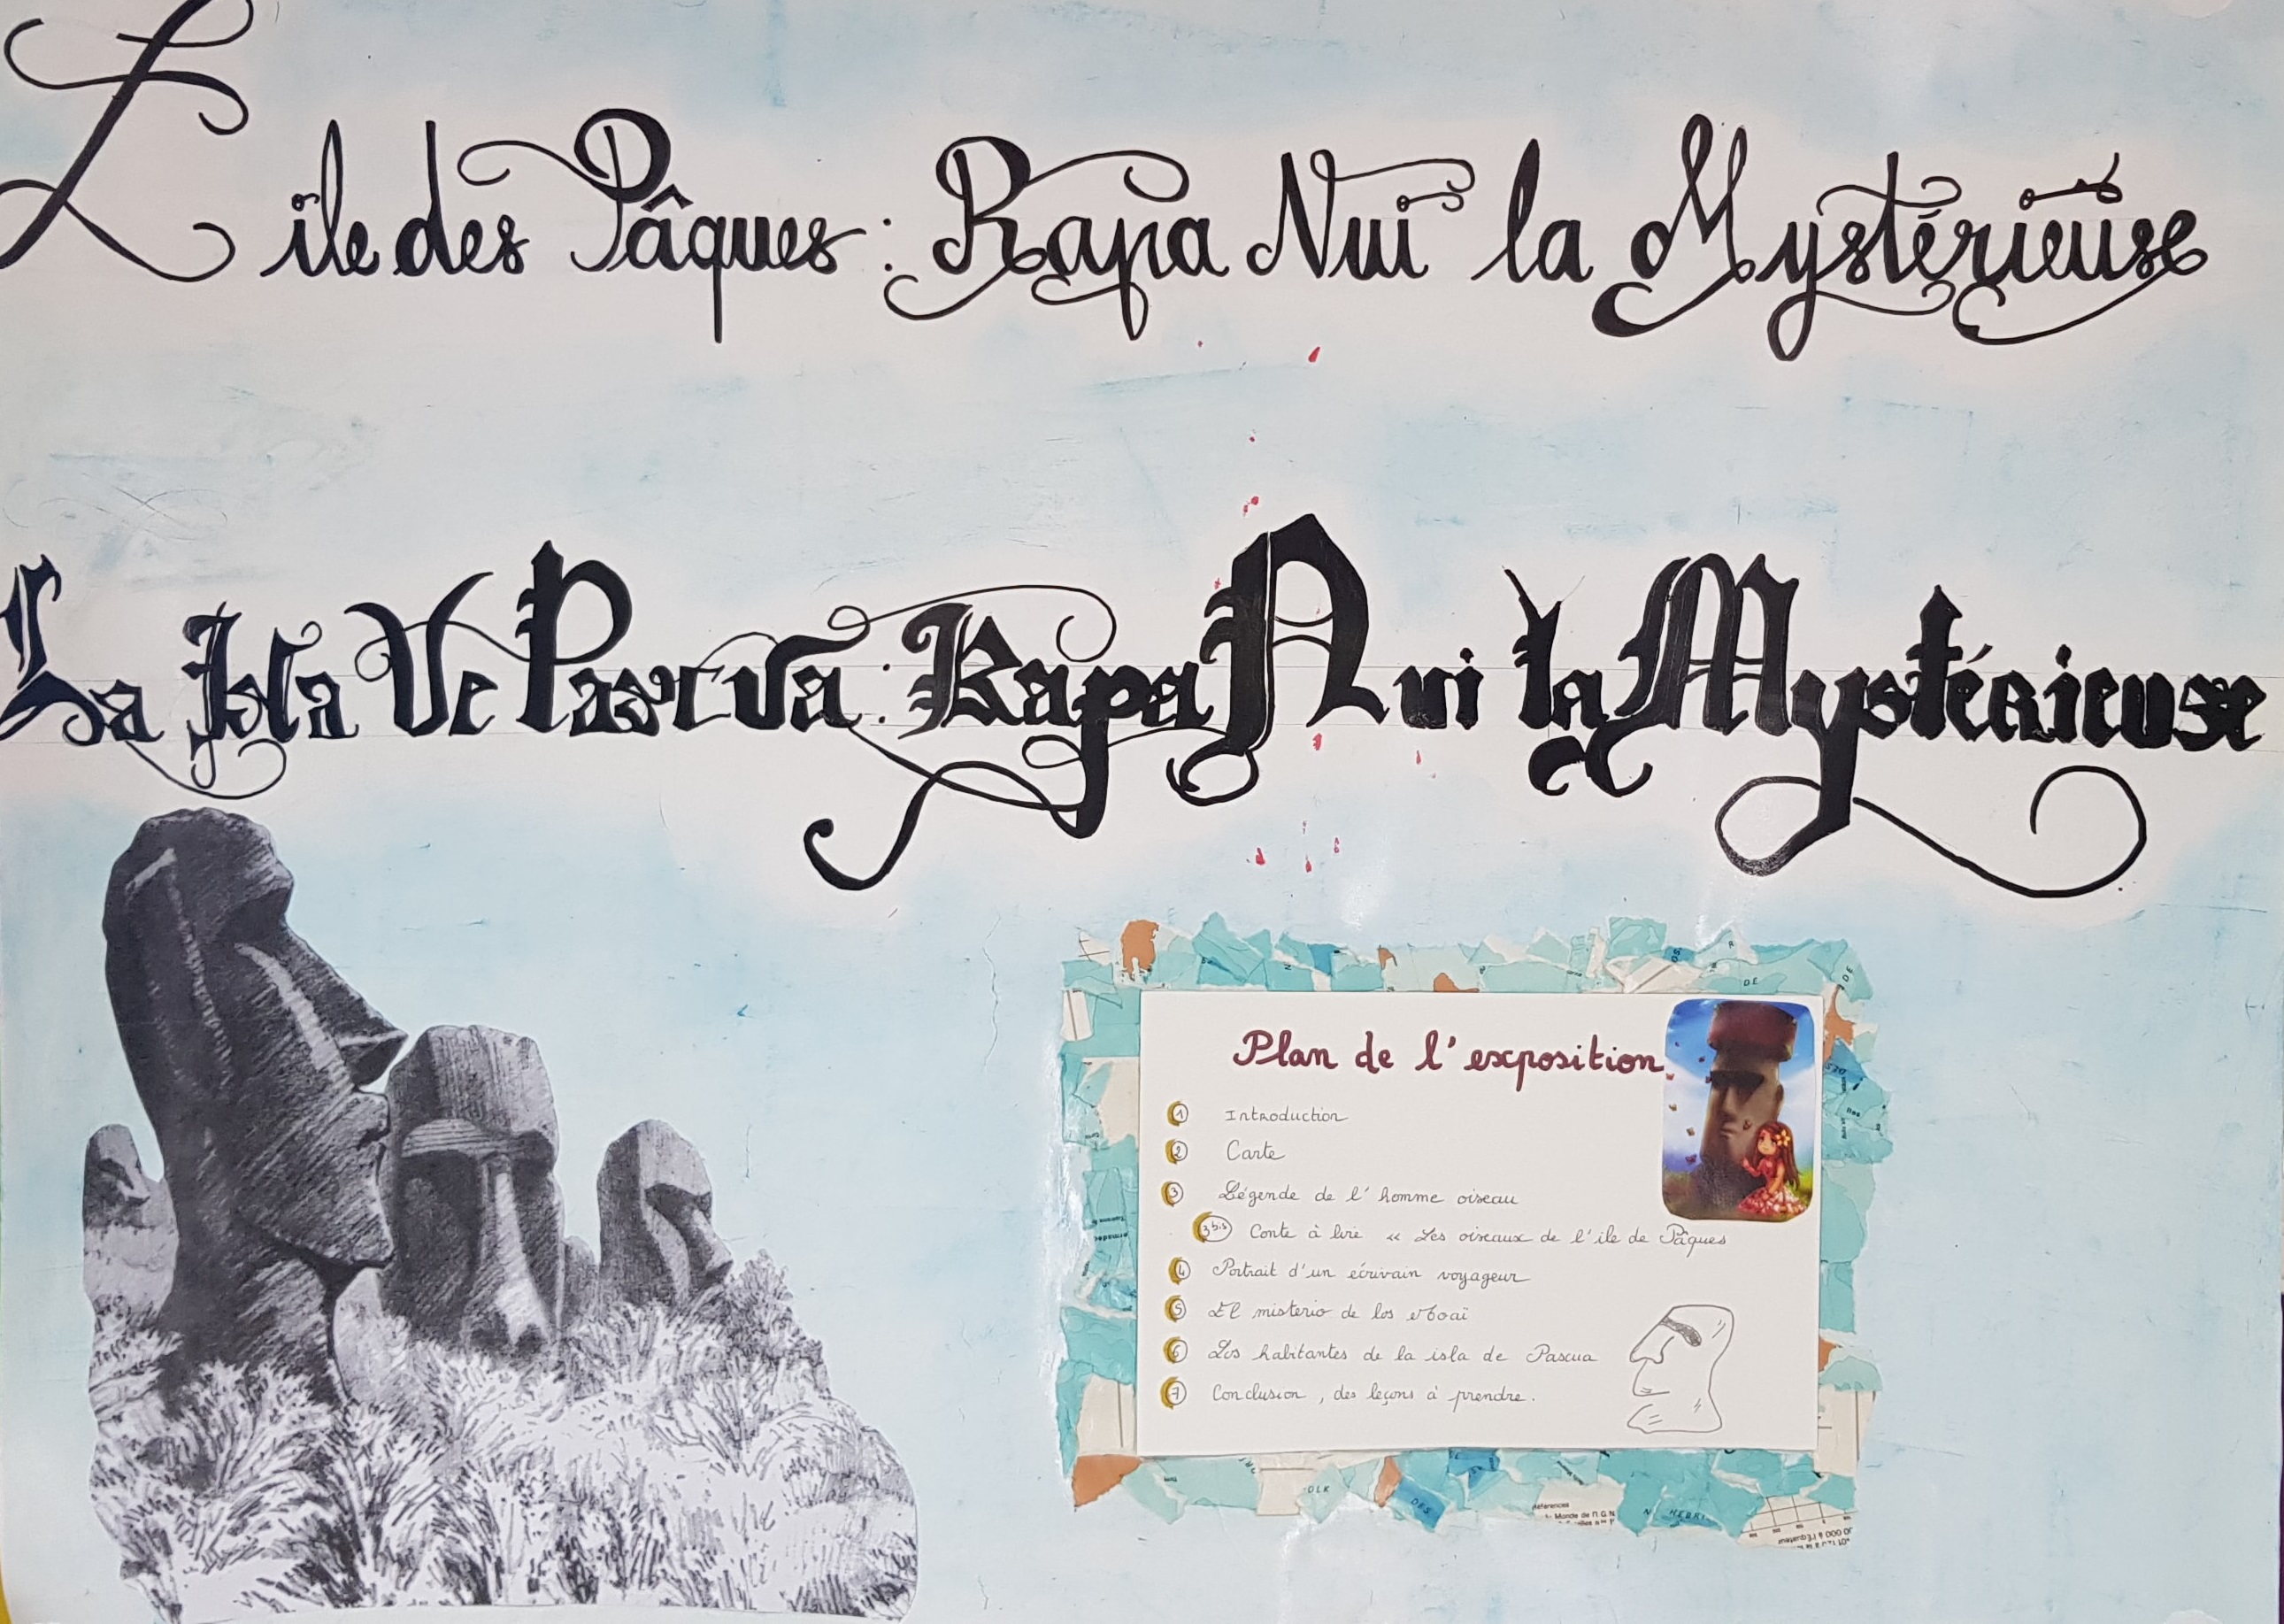 L'île des Pâques : Rapa Nui la Mystérieuse
La Isla De Pascua : Rapa Nui la Mystérieuse
Plan de l'exposition
1 Introduction
2 Carte
3 Légende de l'homme oiseau
3 bis Conte à lire « Les oiseaux de l'ile de Pâques
4 Portrait d'un écrivain voyageur
5 El misterio de los Moaï
6 Los habitantes de la isla de Pascua
7 Conclusion, des leçons à prendre.
DE
DE
OLK
DES
N HEBRI
références
Monde de l'I G N